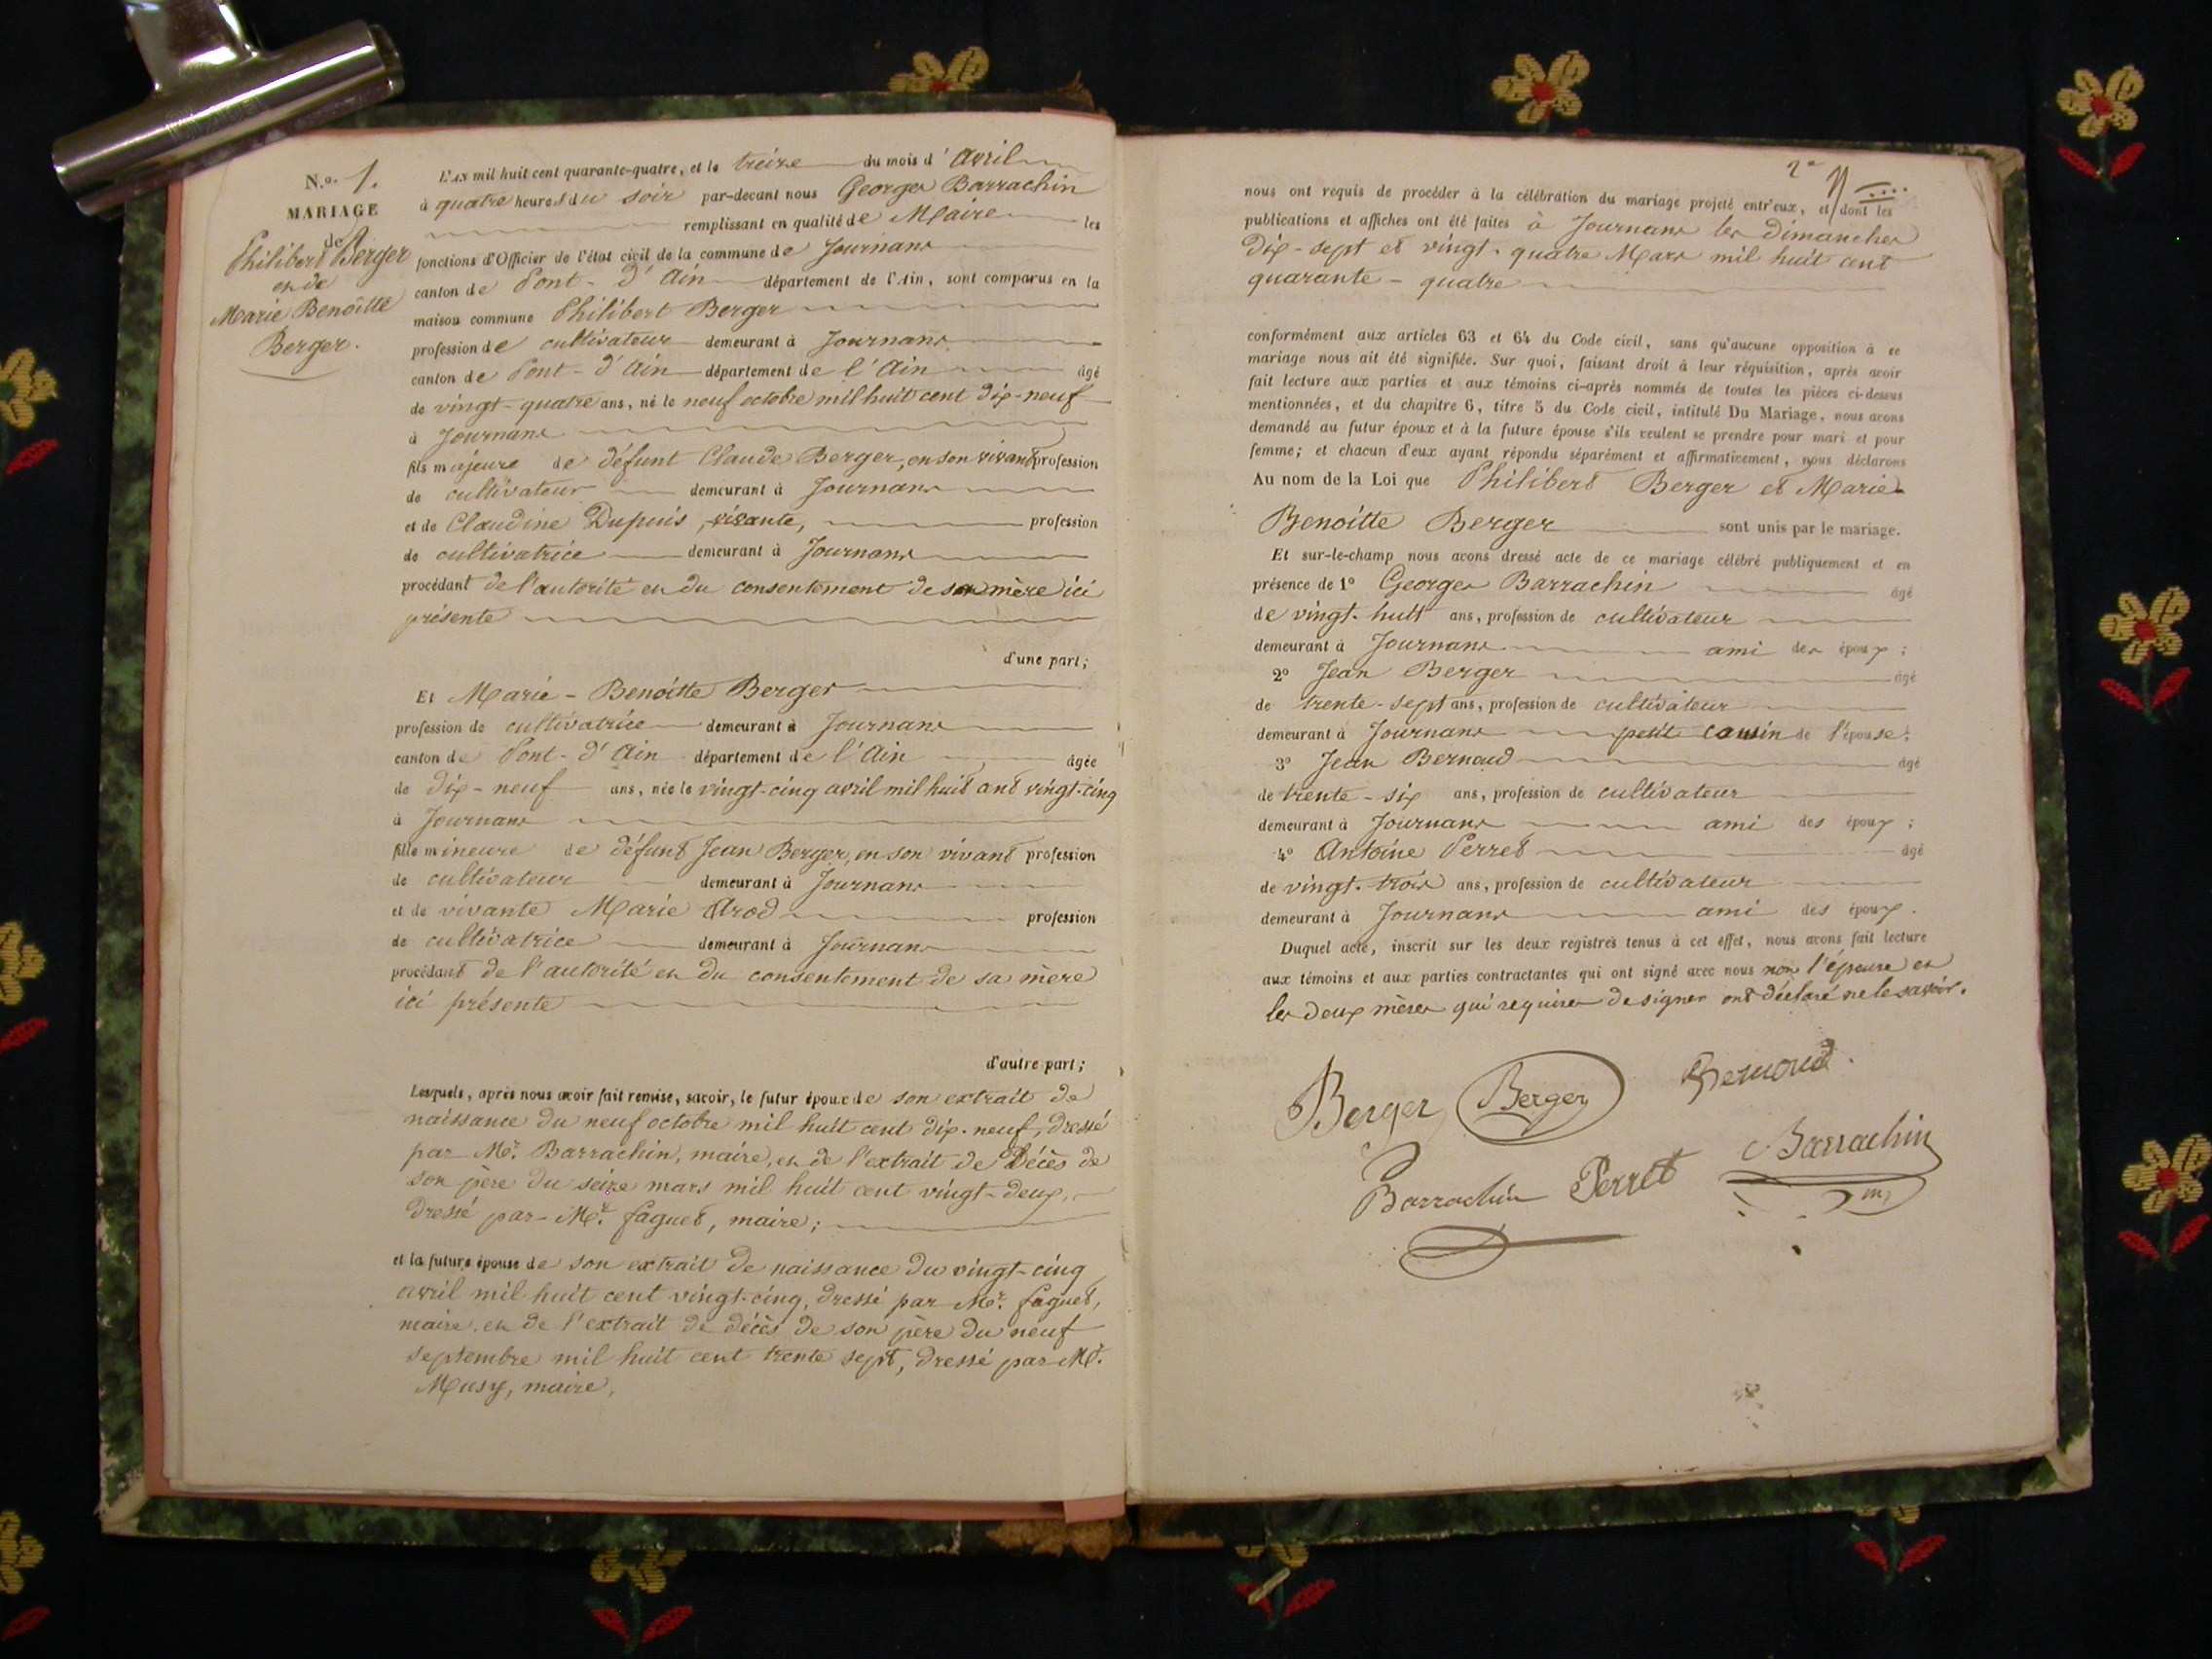 N.o 1.
MARIAGE
de
Philibert Berger
et de
Marie Benoitte
Berger.
L'AN mil huit cent quarante-quatre, et le treize du mois d'Avril
à quatre heures du soir par-devant nous Georges Barrachin
remplissant en qualité de Maire les
fonctions d'Officier de l'état civil de la commune de Journans
canton de Pont-d'Ain département de l'Ain, sont comparus en la
maison commune Philibert Berger
profession de cultivateur demeurant à Journans
canton de Pont-d'Ain département de l'Ain âgé
de vingt-quatre ans, né le neuf octobre mil huit cent dix-neuf
à Journans
fils majeure de défunt Claude Berger, en son vivant profession
de cultivateur demeurant à Journans
et de Claudine Dupuis, vivante, profession
de cultivatrice demeurant à Journans
procédant de l'autorité et du consentement de sa mère ici
présente
d'une part;
Et Marie-Benoitte Berger
profession de cultivatrice demeurant à Journans
canton de Pont-d'Ain département de l'Ain âgée
de dix-neuf ans, née le vingt-cinq avril mil huit cent vingt-cinq
à Journans
fille mineure de défunt Jean Berger, en son vivant profession
de cultivateur demeurant à Journans
et de vivante Marie Arod profession
de cultivatrice demeurant à Journans
procédant de l'autorité et du consentement de sa mère
ici présente
d'autre part;
Lesquels, après nous avoir fait remise, savoir, le futur époux de son extrait de
naissance du neuf octobre mil huit cent dix-neuf, dressé
par Mr. Barrachin, maire, et de l'extrait de Décès de
son père du seize mars mil huit cent vingt-deux,
dressé par Mr. faguet, maire;
et la future épouse de son extrait de naissance du vingt-cinq
avril mil huit cent vingt-cinq, dressé par Mr. faguet,
maire, et de l'extrait de décès de son père du neuf
septembre mil huit cent trente sept, dressé par Mr.
Musy, maire,
2e
nous ont requis de procéder à la célébration du mariage projeté entr'eux, et dont les
publications et affiches ont été faites à Journans les dimanches
dix-sept et vingt-quatre Mars mil huit cent
quarante-quatre
conformément aux articles 63 et 64 du Code civil, sans qu'aucune opposition à ce
mariage nous ait été signifiée. Sur quoi, faisant droit à leur réquisition, après avoir
fait lecture aux parties et aux témoins ci-après nommés de toutes les pièces ci-dessus
mentionnées, et du chapitre 6, titre 5 du Code civil, intitulé Du Mariage, nous avons
demandé au futur époux et à la future épouse s'ils veulent se prendre pour mari et pour
femme; et chacun d'eux ayant répondu séparément et affirmativement, nous déclarons
Au nom de la Loi que Philibert Berger et Marie
Benoitte Berger sont unis par le mariage.
Et sur-le-champ nous avons dressé acte de ce mariage célébré publiquement et en
présence de 1o Georges Barrachin âgé
de vingt-huit ans, profession de cultivateur
demeurant à Journans ami des époux;
2o Jean Berger âgé
de trente-sept ans, profession de cultivateur
demeurant à Journans petit cousin de l'épouse;
3o Jean Bernoud âgé
de trente-six ans, profession de cultivateur
demeurant à Journans ami des époux;
4o Antoine Perret âgé
de vingt-trois ans, profession de cultivateur
demeurant à Journans ami des époux.
Duquel acte, inscrit sur les deux registres tenus à cet effet, nous avons fait lecture
aux témoins et aux parties contractantes qui ont signé avec nous non l'épouse et
les deux mères qui requises de signer ont déclaré ne le savoir.
Berger Berger Bernoud
Barrachin Perret Barrachin